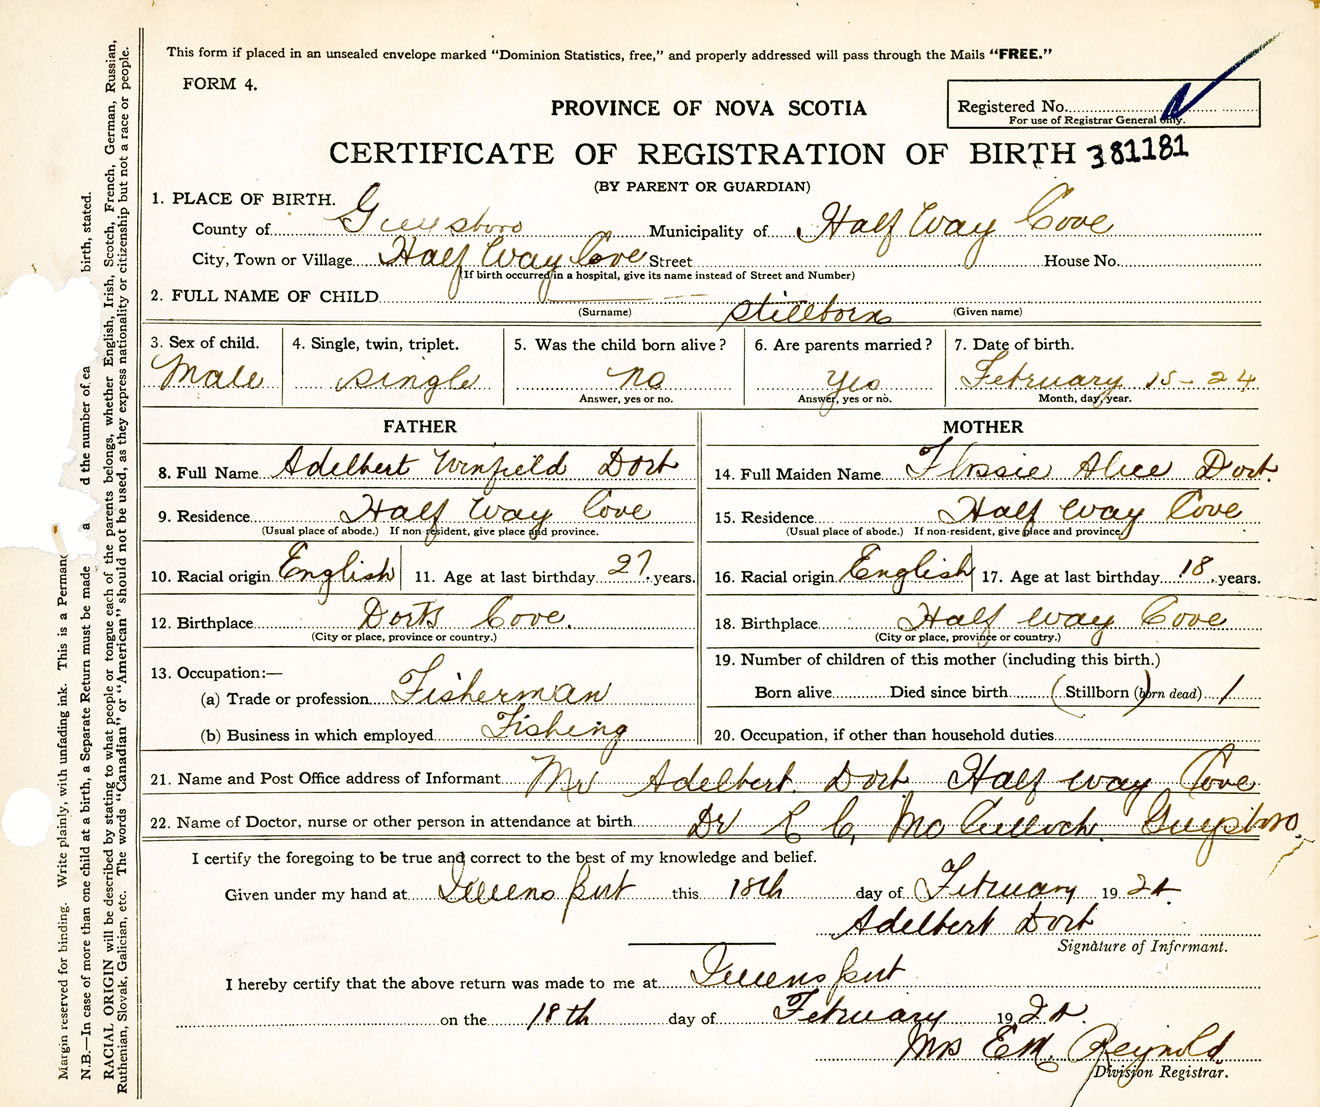 This form if placed in an unsealed envelope marked "Dominion Statistics, free," and properly addressed will pass through the Mails "FREE."
FORM 4.
PROVINCE OF NOVA SCOTIA
Registered No.
For use of Registrar General only.
CERTIFICATE OF REGISTRATION OF BIRTH 381181
(BY PARENT OR GUARDIAN)
1. PLACE OF BIRTH.
County of Guysboro Municipality of Half Way Cove
City, Town or Village Half Way Cove Street House No.
(If birth occurred in a hospital, give its name instead of Street and Number)
2. FULL NAME OF CHILD stillborn
(Surname) (Given name)
3. Sex of child. 4. Single, twin, triplet. 5. Was the child born alive? 6. Are parents married? 7. Date of birth.
Male single no yes February 15-24
Answer, yes or no. Answer, yes or no. Month, day, year.
FATHER MOTHER
8. Full Name Adelbert Winfield Dort 14. Full Maiden Name Flossie Alice Dort.
9. Residence Half Way Cove 15. Residence Half way Cove
(Usual place of abode.) If non resident, give place and province. (Usual place of abode.) If non-resident, give place and province.
10. Racial origin English 11. Age at last birthday 27 years. 16. Racial origin English 17. Age at last birthday 18 years.
12. Birthplace Dorts Cove. 18. Birthplace Half way Cove
(City or place, province or country.) (City or place, province or country.)
13. Occupation:— 19. Number of children of this mother (including this birth.)
(a) Trade or profession Fisherman Born alive Died since birth (Stillborn (born dead) 1
(b) Business in which employed Fishing 20. Occupation, if other than household duties
21. Name and Post Office address of Informant Mr Adelbert Dort Half way Cove
22. Name of Doctor, nurse or other person in attendance at birth Dr C, McCulloch. Guysboro
I certify the foregoing to be true and correct to the best of my knowledge and belief.
Given under my hand at Queensport this 18th day of February 1924.
Adelbert Dort
Signature of Informant.
I hereby certify that the above return was made to me at Queensport
on the 18th day of February 1924.
Mrs E.M. Reynolds
Division Registrar.
Margin reserved for binding. Write plainly, with unfading ink. This is a Permanc
N.B.—In case of more than one child at a birth, a Separate Return must be made a d the number of ea birth, stated.
RACIAL ORIGIN will be described by stating to what people or tongue each of the parents belongs, whether English, Irish, Scotch, French, German, Russian,
Ruthenian, Slovak, Galician, etc. The words "Canadian" or "American" should not be used, as they express nationality or citizenship but not a race or people.